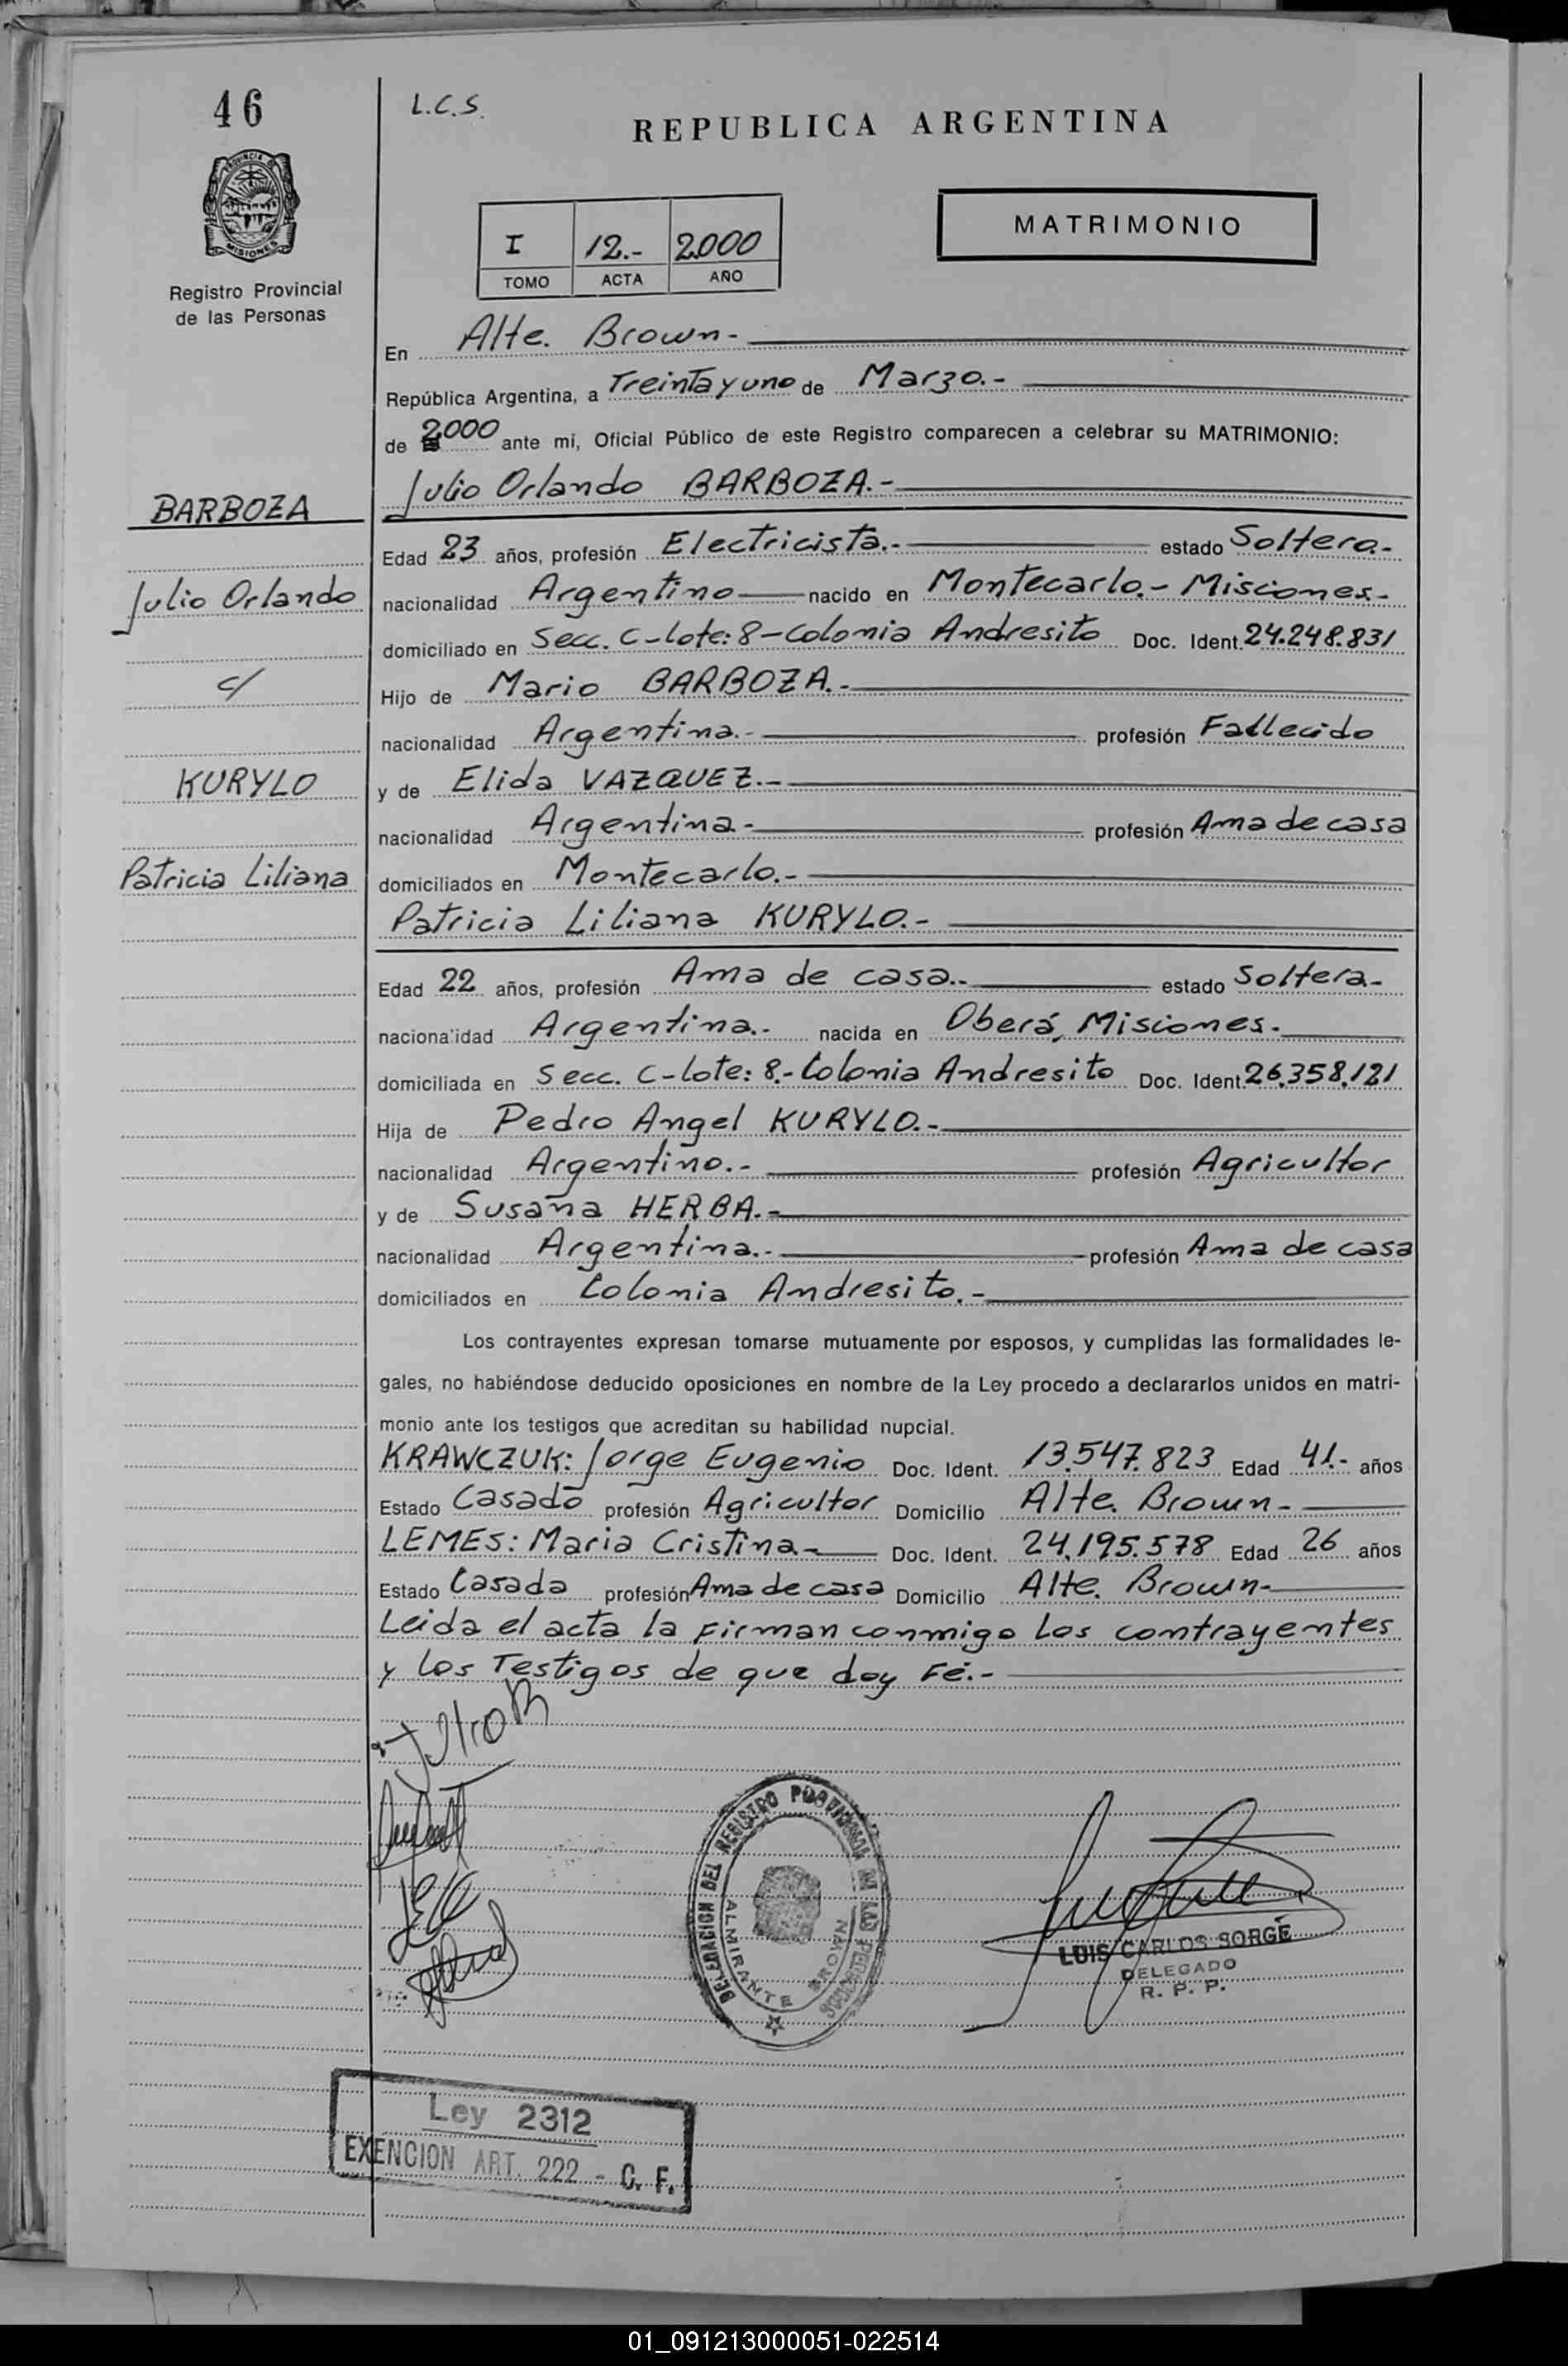 46
L.C.S.
REPUBLICA ARGENTINA
PROVINCIA DE
MISIONES
Registro Provincial
de las Personas
I 12.- 2000
TOMO ACTA AÑO
MATRIMONIO
En Alte. Brown-
República Argentina, a Treinta y uno de Marzo.-
de 2000 ante mí, Oficial Público de este Registro comparecen a celebrar su MATRIMONIO:
Julio Orlando BARBOZA.-
Edad 23 años, profesión Electricista.- estado Soltero.-
nacionalidad Argentino nacido en Montecarlo.- Misiones.-
domiciliado en Secc. C-lote: 8-Colonia Andresito Doc. Ident. 24.248.831
Hijo de Mario BARBOZA.-
nacionalidad Argentina.- profesión Fallecido
y de Elida VAZQUEZ.-
nacionalidad Argentina.- profesión Ama de casa
domiciliados en Montecarlo.-
Patricia Liliana KURYLO.-
Edad 22 años, profesión Ama de casa.- estado Soltera.-
nacionalidad Argentina.- nacida en Oberá, Misiones.-
domiciliada en Secc. C-lote: 8.-Colonia Andresito Doc. Ident. 26.358.121
Hija de Pedro Angel KURYLO.-
nacionalidad Argentino.- profesión Agricultor
y de Susana HERBA.-
nacionalidad Argentina.- profesión Ama de casa
domiciliados en Colonia Andresito.-
BARBOZA
Julio Orlando
c/
KURYLO
Patricia Liliana
Los contrayentes expresan tomarse mutuamente por esposos, y cumplidas las formalidades le-
gales, no habiéndose deducido oposiciones en nombre de la Ley procedo a declararlos unidos en matri-
monio ante los testigos que acreditan su habilidad nupcial.
KRAWCZUK: Jorge Eugenio Doc. Ident. 13.547.823 Edad 41.- años
Estado Casado profesión Agricultor Domicilio Alte. Brown-
LEMES: Maria Cristina- Doc. Ident. 24.195.578 Edad 26 años
Estado Casada profesión Ama de casa Domicilio Alte. Brown-
Leida el acta la Firman conmigo los contrayentes
y los Testigos de que doy Fé.-
Julio B
DELEGACION DEL REGISTRO PROVINCIAL DE LAS PERSONAS
ALMIRANTE BROWN
LUIS CARLOS SORGE
DELEGADO
R. P. P.
Ley 2312
EXENCION ART. 222 - C. F.
01_091213000051-022514